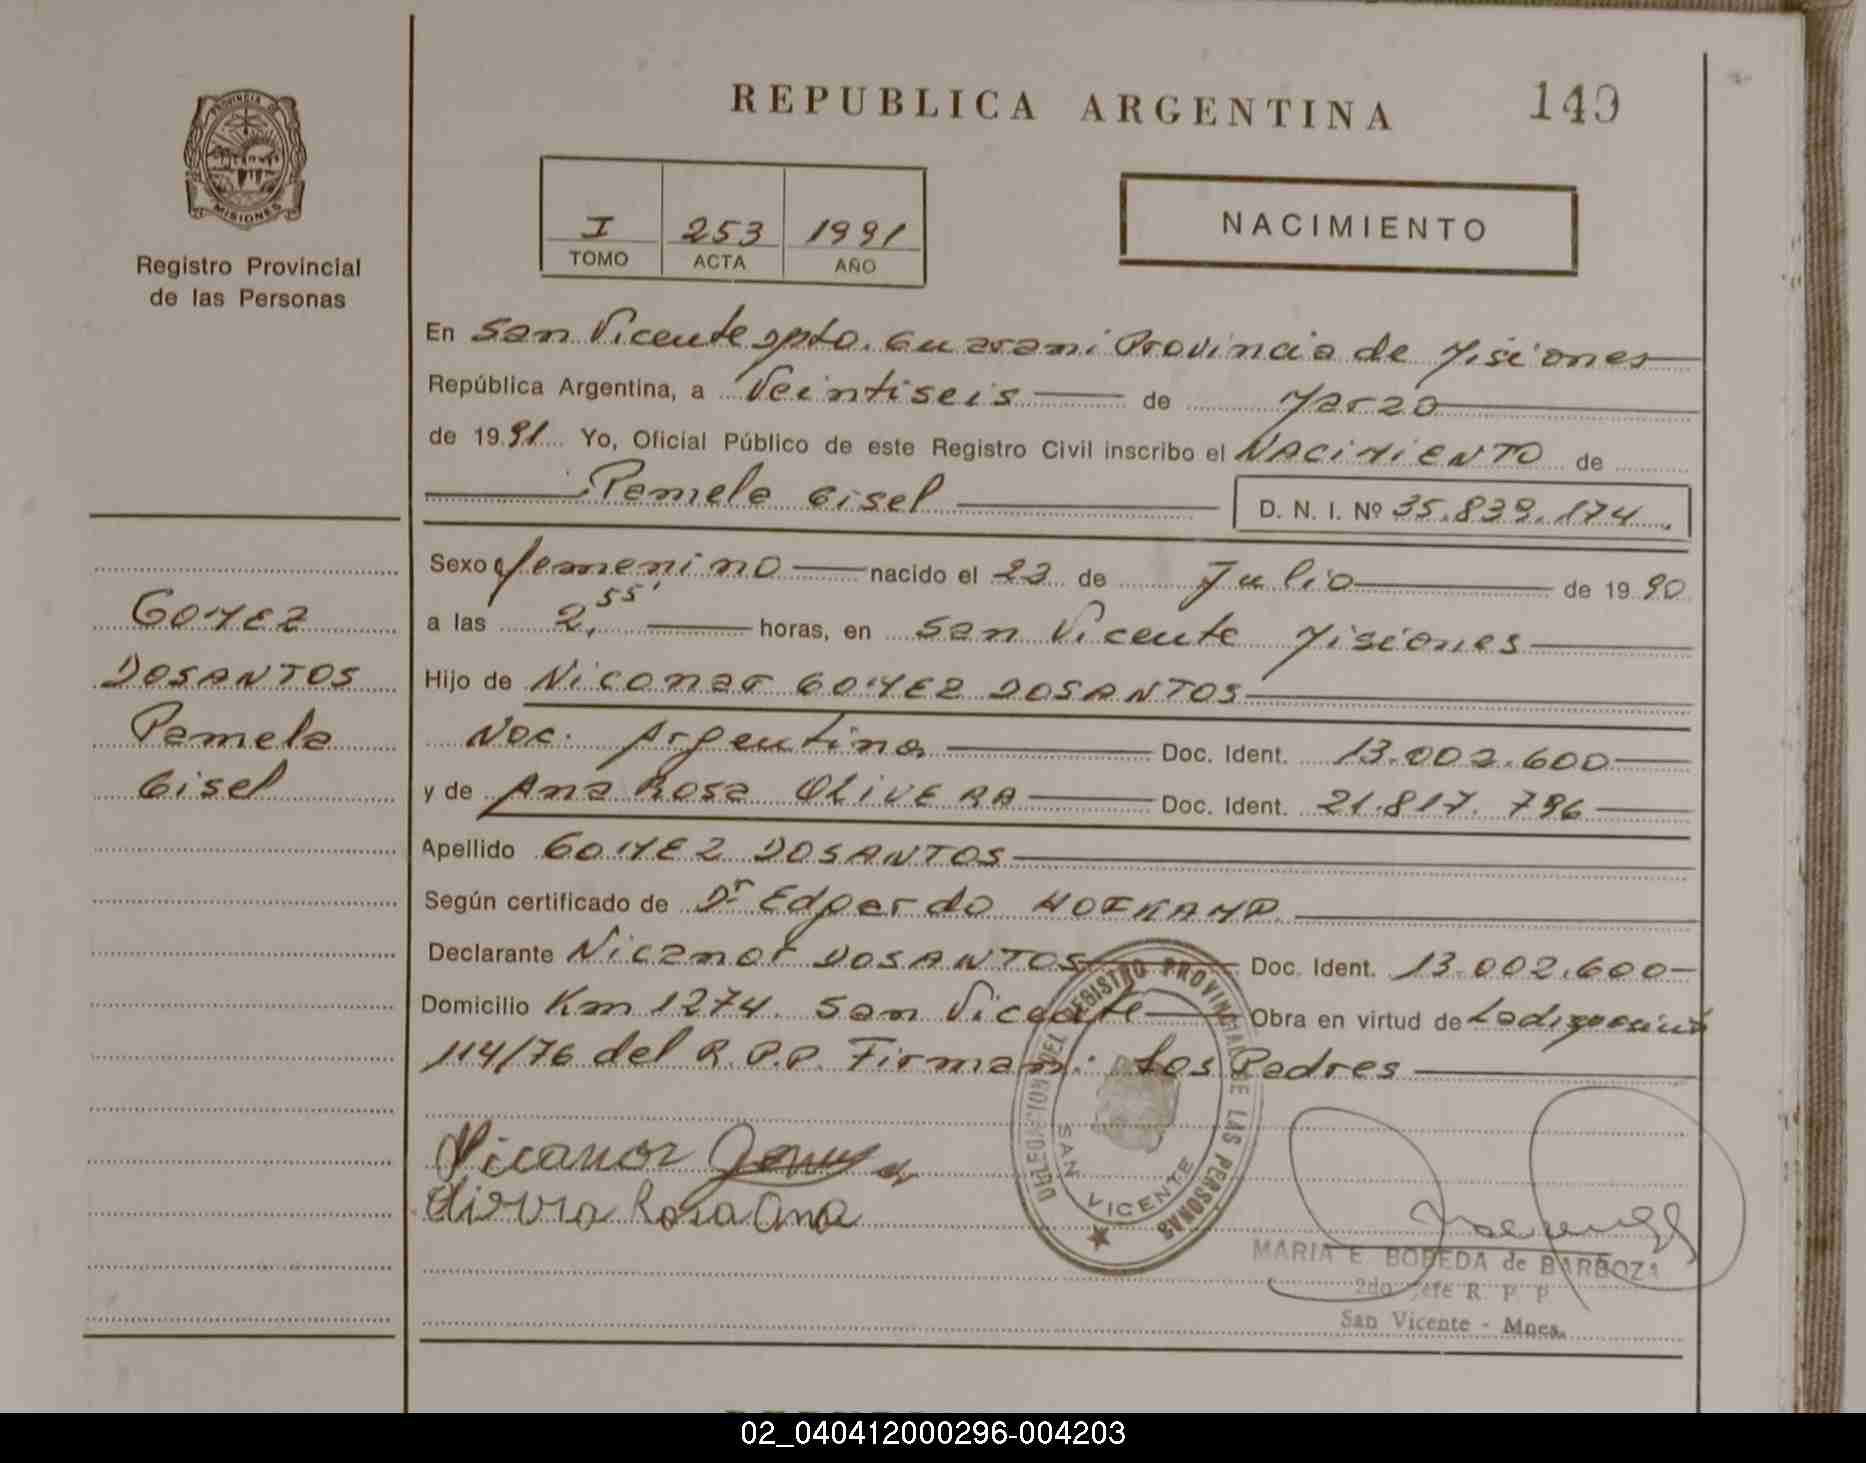 REPUBLICA ARGENTINA
149
PROVINCIA DE
MISIONES
Registro Provincial
de las Personas
I 253 1991
TOMO ACTA AÑO
NACIMIENTO
En San Vicente Dpto. Guarani Provincia de Misiones
República Argentina, a Veintiseis de Marzo
de 1991 Yo, Oficial Público de este Registro Civil inscribo el NACIMIENTO de
Pamela Gisel D. N. I. Nº 35.839.174.
Sexo femenino nacido el 23 de Julio de 1990
a las 2,55' horas, en San Vicente Misiones
Hijo de Nicanor GOMEZ DOSANTOS
Nac. Argentina Doc. Ident. 13.002.600
y de Ana Rosa OLIVERA Doc. Ident. 21.817.796
Apellido GOMEZ DOSANTOS
Según certificado de Dr Edgardo HOFKAMP
Declarante Nicanor DOSANTOS Doc. Ident. 13.002.600
Domicilio Km 1274. San Vicente Obra en virtud de La disposición
114/76 del R.P.P. Firman: Los Padres
GOMEZ
DOSANTOS
Pamela
Gisel
Nicanor
Rosa Ana
DELEGACION DEL REGISTRO PROVINCIAL DE LAS PERSONAS
SAN VICENTE
MARIA E BOBEDA de BARBOZA
2do Jefe R. P. P.
San Vicente - Mnes.
02_040412000296-004203